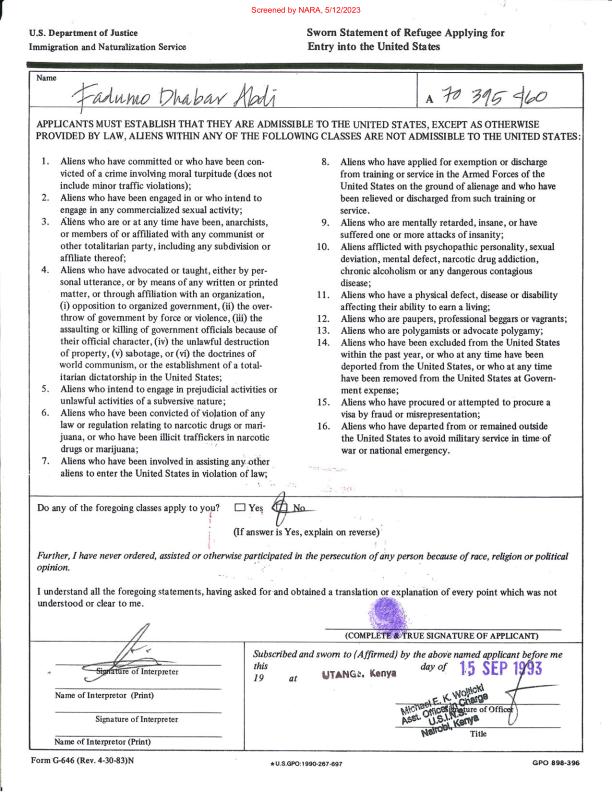 Screened by NARA, 5/12/2023
U.S. Department of Justice
Immigration and Naturalization Service
Sworn Statement of Refugee Applying for
Entry into the United States
Name
Fadumo Dhabar Abdi
A 70 395 960
APPLICANTS MUST ESTABLISH THAT THEY ARE ADMISSIBLE TO THE UNITED STATES, EXCEPT AS OTHERWISE
PROVIDED BY LAW, ALIENS WITHIN ANY OF THE FOLLOWING CLASSES ARE NOT ADMISSIBLE TO THE UNITED STATES:
1. Aliens who have committed or who have been con-
victed of a crime involving moral turpitude (does not
include minor traffic violations);
2. Aliens who have been engaged in or who intend to
engage in any commercialized sexual activity;
3. Aliens who are or at any time have been, anarchists,
or members of or affiliated with any communist or
other totalitarian party, including any subdivision or
affiliate thereof;
4. Aliens who have advocated or taught, either by per-
sonal utterance, or by means of any written or printed
matter, or through affiliation with an organization,
(i) opposition to organized government, (ii) the over-
throw of government by force or violence, (iii) the
assaulting or killing of government officials because of
their official character, (iv) the unlawful destruction
of property, (v) sabotage, or (vi) the doctrines of
world communism, or the establishment of a total-
itarian dictatorship in the United States;
5. Aliens who intend to engage in prejudicial activities or
unlawful activities of a subversive nature;
6. Aliens who have been convicted of violation of any
law or regulation relating to narcotic drugs or mari-
juana, or who have been illicit traffickers in narcotic
drugs or marijuana;
7. Aliens who have been involved in assisting any other
aliens to enter the United States in violation of law;
8. Aliens who have applied for exemption or discharge
from training or service in the Armed Forces of the
United States on the ground of alienage and who have
been relieved or discharged from such training or
service.
9. Aliens who are mentally retarded, insane, or have
suffered one or more attacks of insanity;
10. Aliens afflicted with psychopathic personality, sexual
deviation, mental defect, narcotic drug addiction,
chronic alcoholism or any dangerous contagious
disease;
11. Aliens who have a physical defect, disease or disability
affecting their ability to earn a living;
12. Aliens who are paupers, professional beggars or vagrants;
13. Aliens who are polygamists or advocate polygamy;
14. Aliens who have been excluded from the United States
within the past year, or who at any time have been
deported from the United States, or who at any time
have been removed from the United States at Govern-
ment expense;
15. Aliens who have procured or attempted to procure a
visa by fraud or misrepresentation;
16. Aliens who have departed from or remained outside
the United States to avoid military service in time of
war or national emergency.
Do any of the foregoing classes apply to you? Yes No
(If answer is Yes, explain on reverse)
Further, I have never ordered, assisted or otherwise participated in the persecution of any person because of race, religion or political
opinion.
I understand all the foregoing statements, having asked for and obtained a translation or explanation of every point which was not
understood or clear to me.
(COMPLETE & TRUE SIGNATURE OF APPLICANT)
Signature of Interpreter
Name of Interpreter (Print)
Signature of Interpreter
Name of Interpreter (Print)
Subscribed and sworn to (Affirmed) by the above named applicant before me
this day of 15 SEP 1993
19 at UTANGE, Kenya
Michael E. K. Wojticki
Asst. Officer in Charge
U.S.I.N.S.
Nairobi, Kenya
Signature of Officer
Title
Form G-646 (Rev. 4-30-83)N
★U.S.GPO:1990-267-697
GPO 898-396